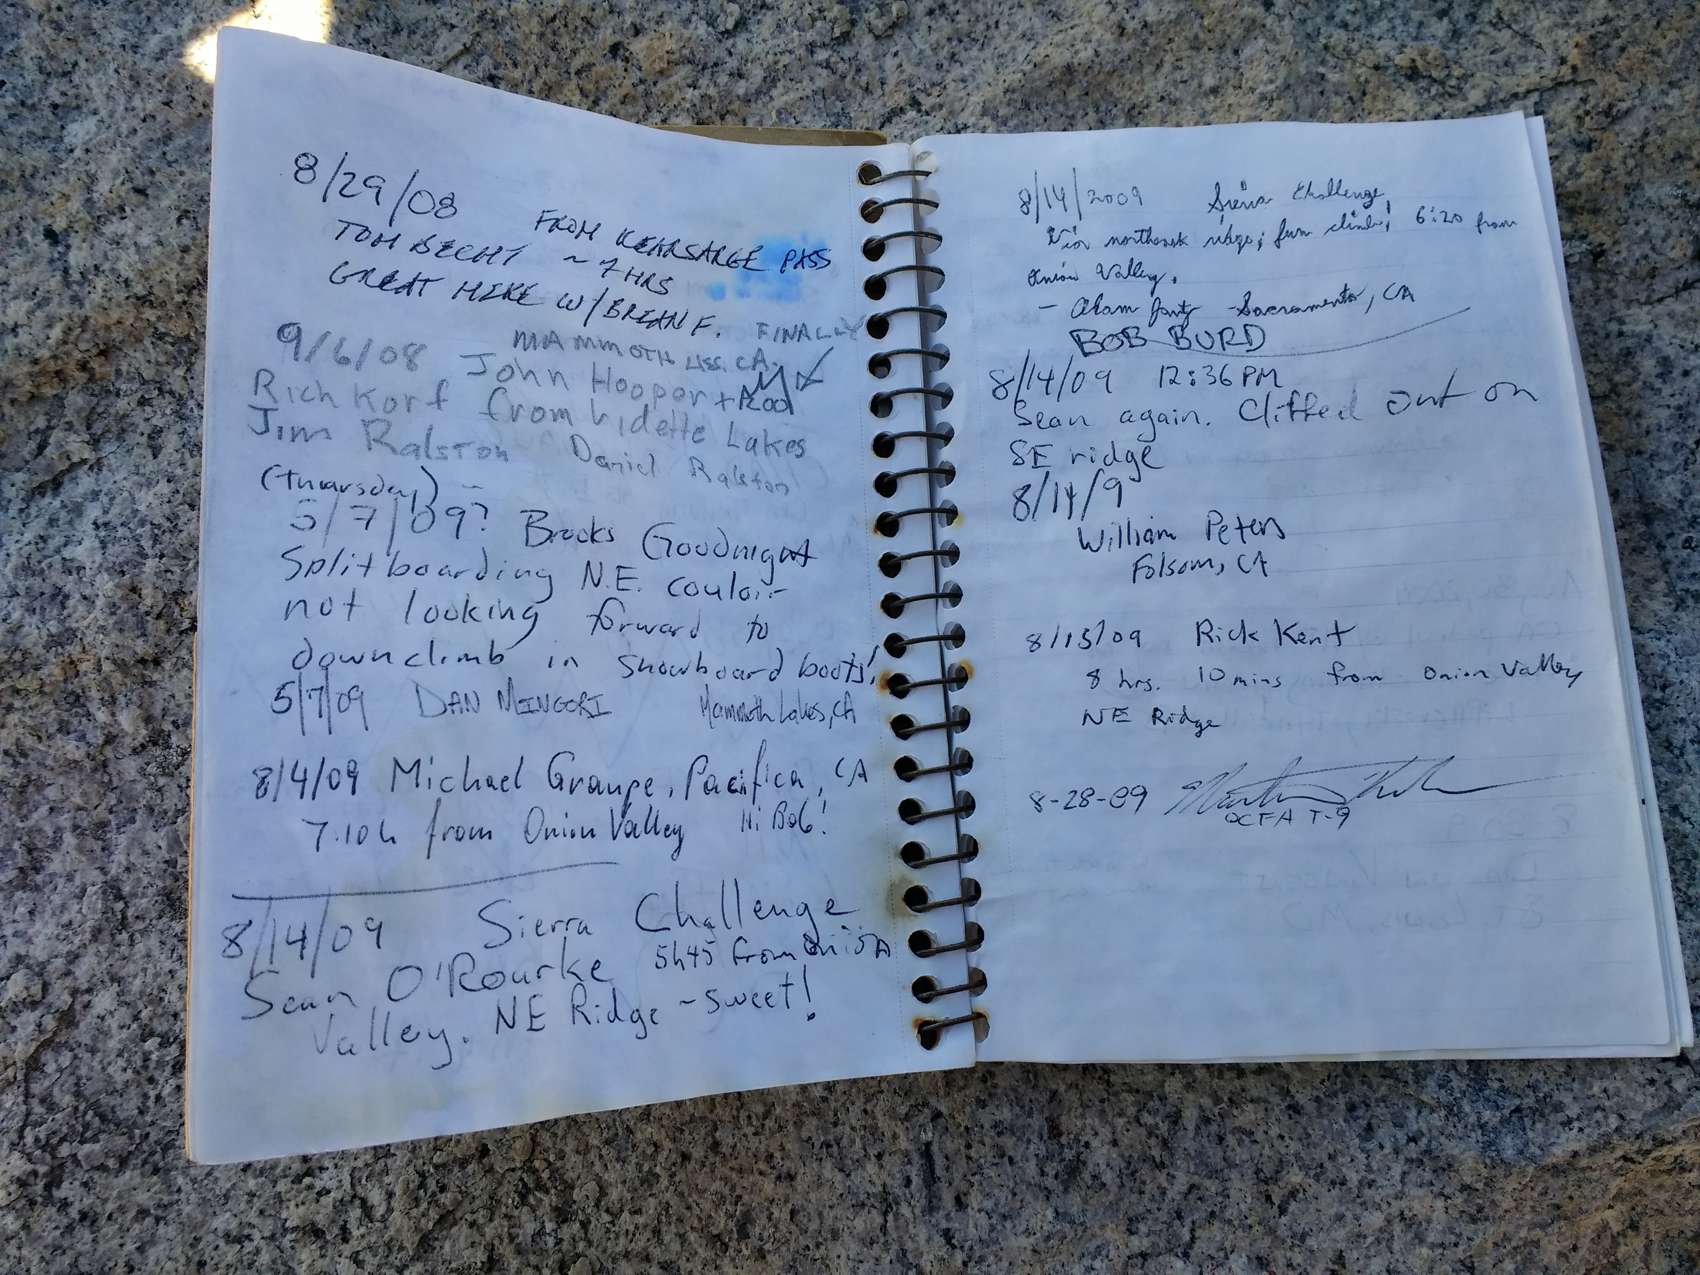 8/29/08
FROM KEARSARGE PASS
TOM BECHT ~ 7 HRS
GREAT HIKE W/ BRIAN F.
FINALLY
9/6/08 MAMMOTH CA
John Hooper +
Rich Korf from Vidette Lakes
Jim Ralston Daniel Ralston
(Thursday)
5/7/09? Brooks Goodnight
Splitboarding N.E. couloir
not looking forward to
downclimb in snowboard boots!
5/7/09 DAN MINGORI Mammoth Lakes, CA
8/4/09 Michael Graupe, Pacifica, CA
7:10h from Onion Valley Hi Bob!
8/14/09 Sierra Challenge
Sean O'Rourke 5h45 from Onion
Valley. NE Ridge ~ sweet!
8/14/2009 Sierra Challenge,
Via northeast ridge; fun climb; 6:20 from
Onion Valley.
- Adam Sacramento, CA
BOB BURD
8/14/09 12:36 PM
Sean again. Cliffed out on
SE ridge
8/14/9
William Peters
Folsom, CA
8/15/09 Rick Kent
8 hrs. 10 mins from Onion Valley
NE Ridge
8-28-09
OCFA T-9